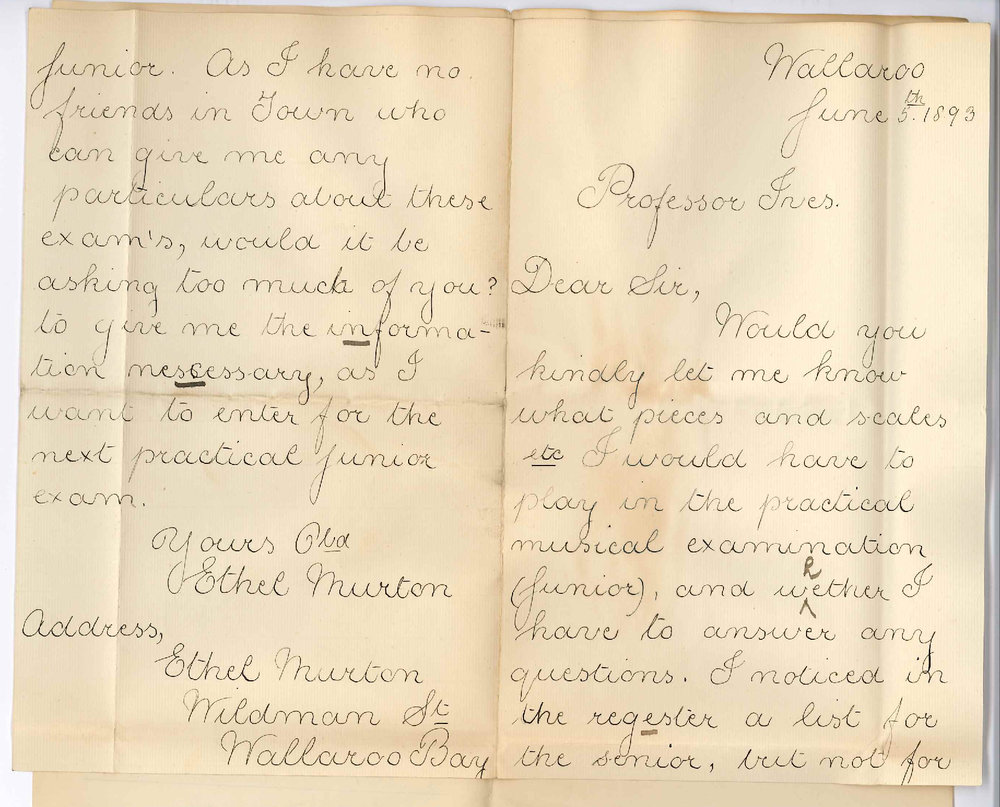 Wallaroo
June 5th. 1893
Professor Ives.
Dear Sir,
Would you
kindly let me know
what pieces and scales
etc I would have to
play in the practical
musical examination
(Junior), and wether I
h
have to answer any
questions. I noticed in
the regester a list for
the senior, but not for
junior. As I have no
friends in Town who
can give me any
particulars about these
exam's, would it be
asking too much of you?
to give me the informa-
tion nescessary, as I
want to enter for the
next practical junior
exam.
Yours Obd
Ethel Murton
Address,
Ethel Murton
Wildman St
Wallaroo Bay